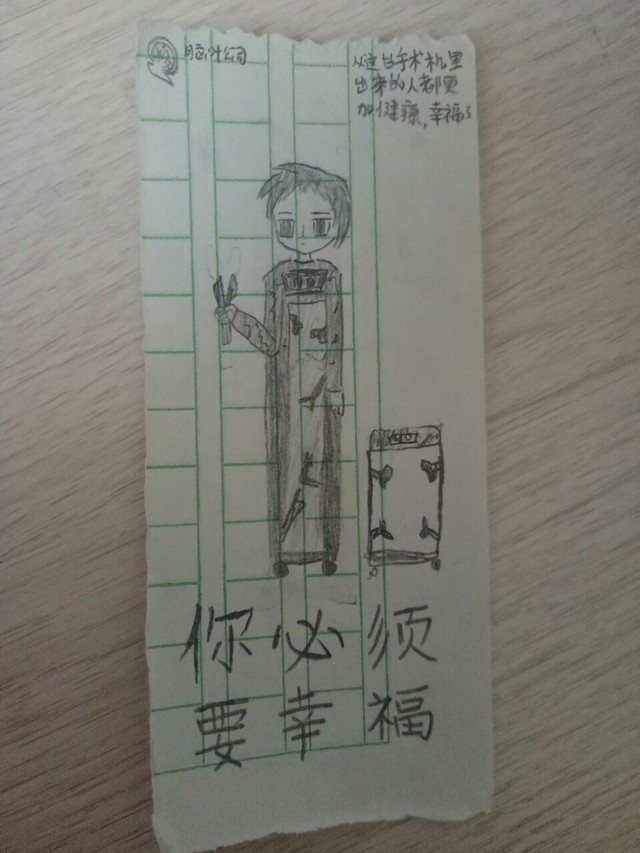 脑叶公司
从这台手术机里
出来的人都更
加健康,幸福了
你必须
要幸福